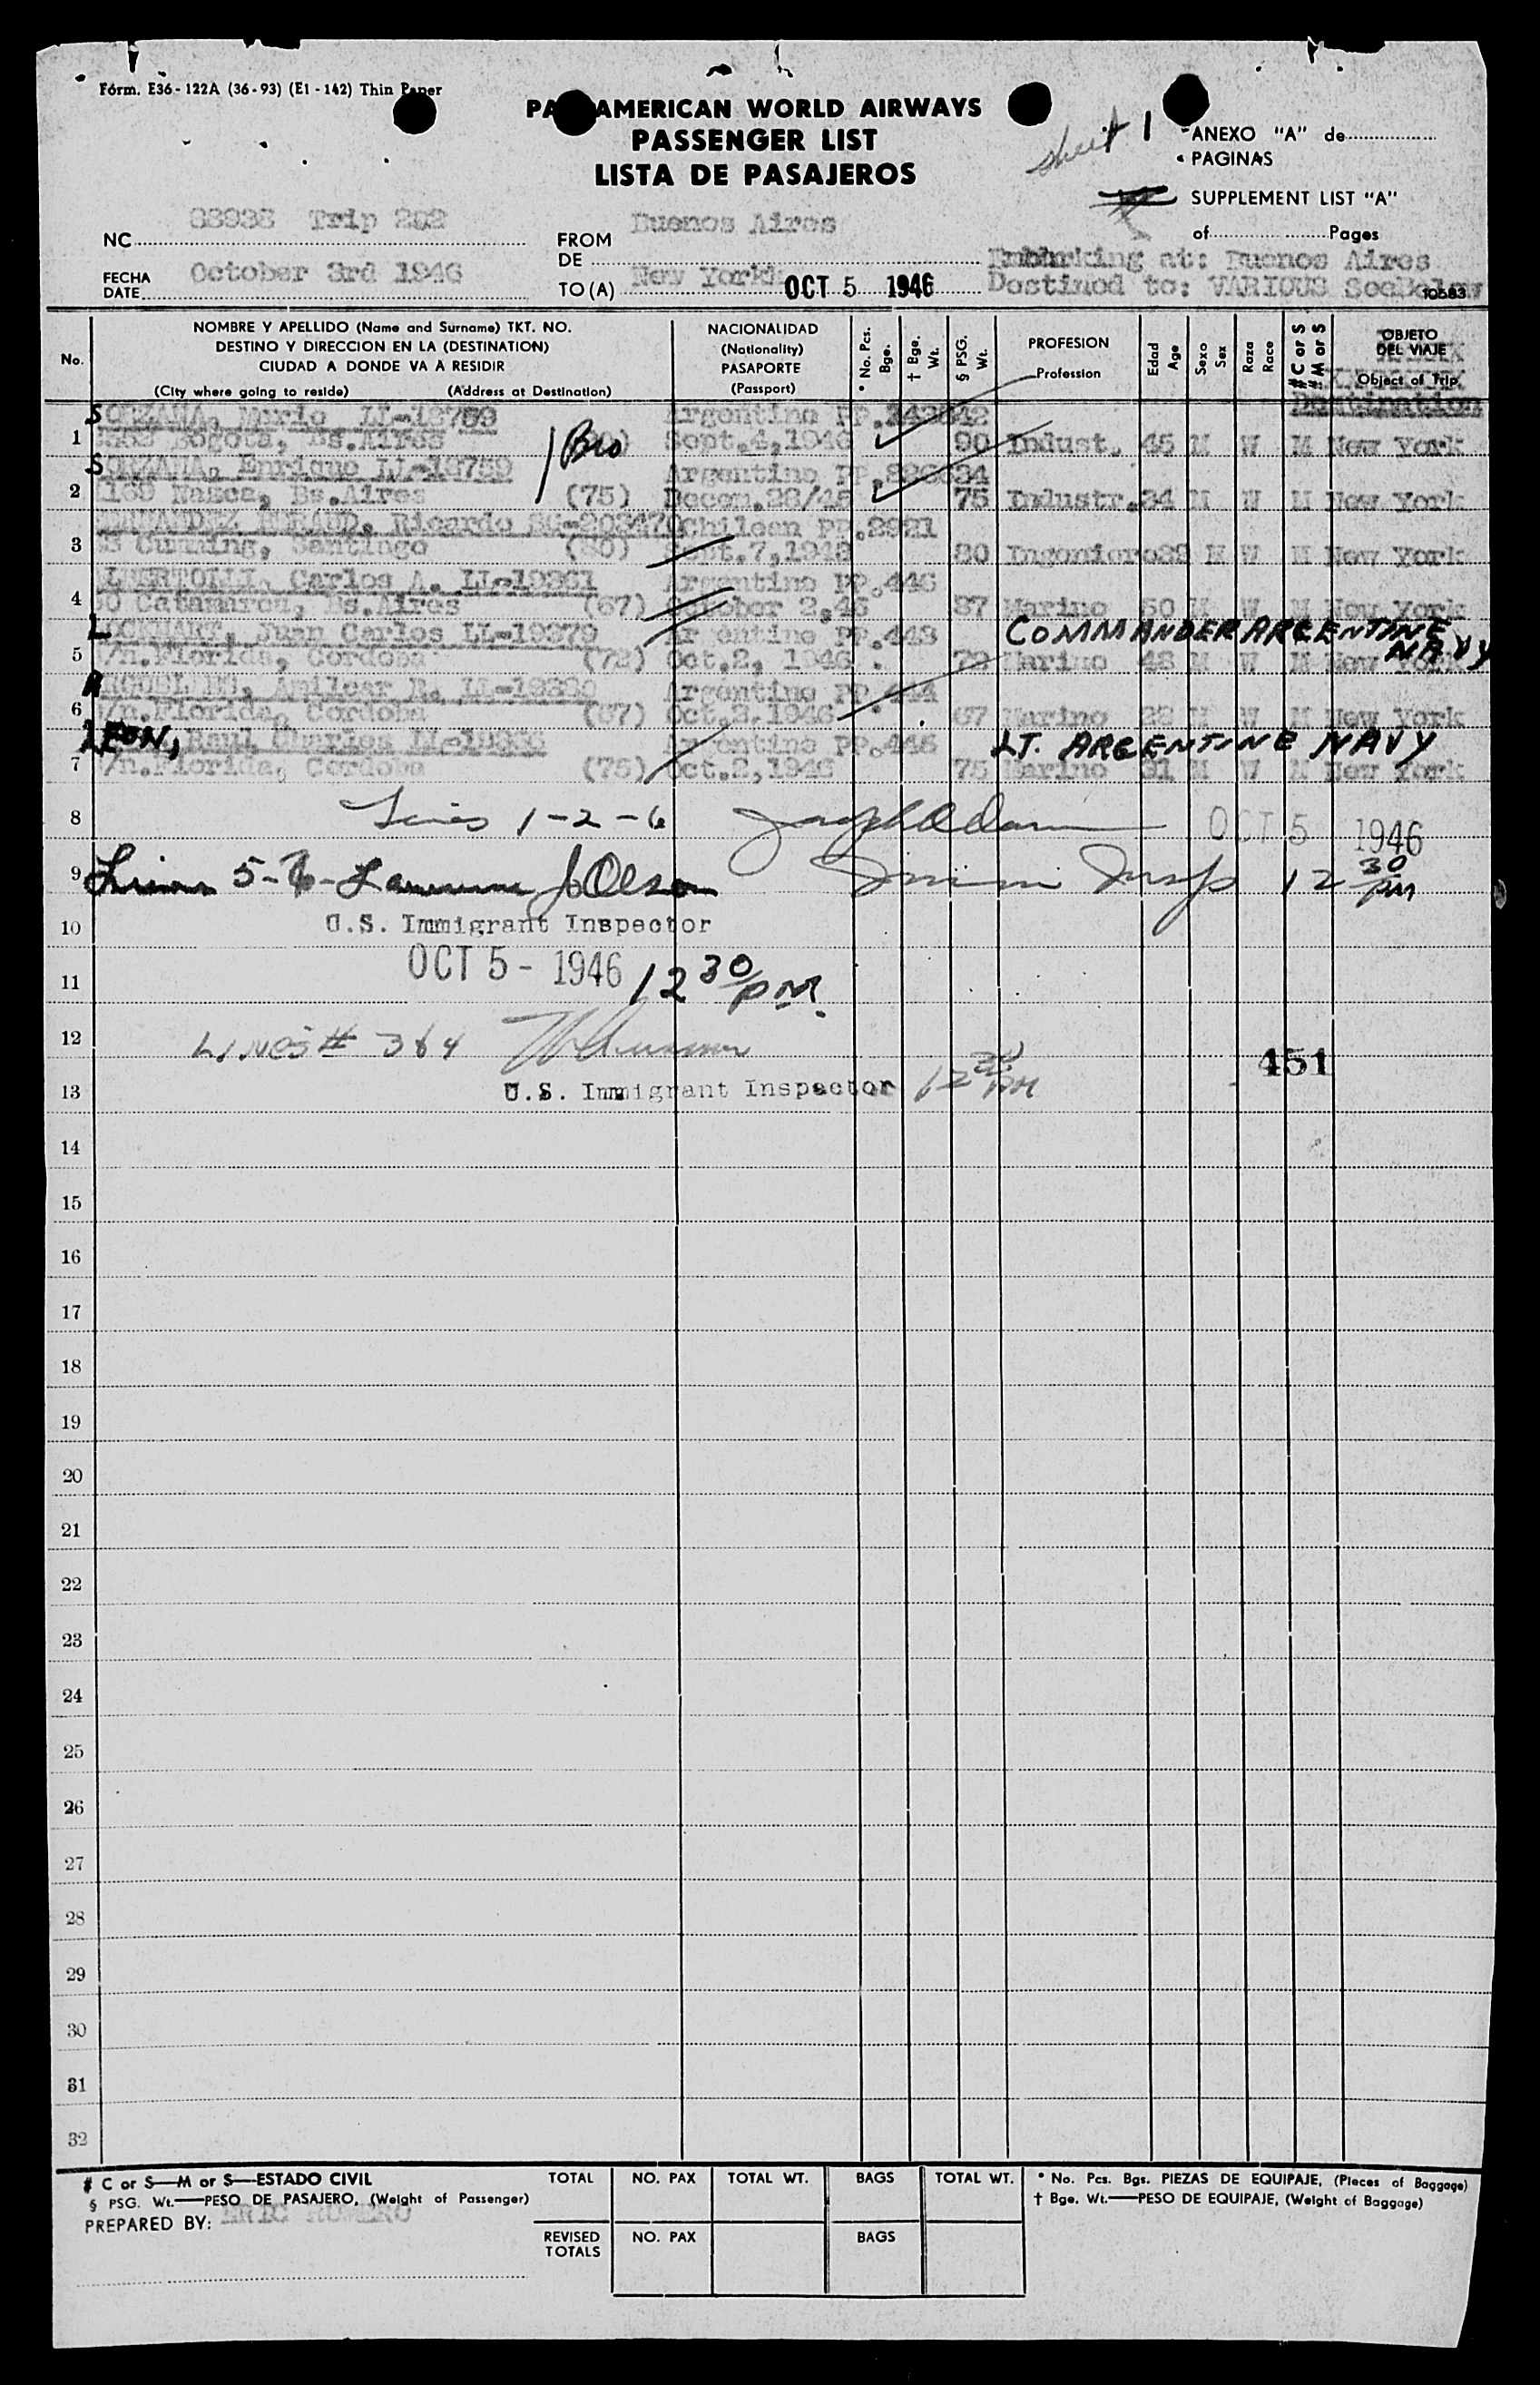 Form. E36-122A (36-93) (E1-142) Thin Paper
PAN AMERICAN WORLD AIRWAYS
PASSENGER LIST
LISTA DE PASAJEROS
sheet 1
ANEXO "A" de
PAGINAS
SUPPLEMENT LIST "A"
of Pages
NC 88938 Trip 202
FROM DE Buenos Aires
FECHA DATE October 3rd 1946
TO (A) New York OCT 5 1946
Embarking at: Buenos Aires
Destined to: VARIOUS SeeBelow
10583
No.
NOMBRE Y APELLIDO (Name and Surname) TKT. NO.
DESTINO Y DIRECCION EN LA (DESTINATION)
CIUDAD A DONDE VA A RESIDIR
(City where going to reside) (Address at Destination)
NACIONALIDAD
(Nationality)
PASAPORTE
(Passport)
* No. Pcs. Bge.
† Bge. Wt.
§ PSG. Wt.
PROFESION
Profession
Edad Age
Sexo Sex
Raza Race
# C or S
# M or S
OBJETO
DEL VIAJE
Object of Trip
Destination
SORZANA, Mario LL-19759 Argentino PP.
1 Bogota, Bs.Aires Bro Sept.4,1946 90 Indust. 45 M W M New York
SORZANA, Enrique LL-19759 Argentino PP.
2 Nazca, Bs.Aires (75) Decem.28/45 75 Industr. 34 M W M New York
Ricardo Chilean PP.2921
3 Cumming, Santiago (80) Sept.7,1946 80 Ingeniero 38 M W M New York
ALBERTOLLI, Carlos A. LL-19361 Argentino PP.446
4 Catamarca, Bs.Aires (67) October 2,46 Marino 50 M W M New York
LOCKHART, Juan Carlos LL-19379 Argentino PP.448 COMMANDER ARGENTINE NAVY
5 s/n.Florida, Cordoba (72) Oct.2, 1946 Marino 48 M W M New York
Amilcar R. Argentino PP.444
6 s/n.Florida, Cordoba (67) Oct.2,1946 67 Marino 28 M W M New York
LEON, Raul Charles Argentino PP.445 LT. ARGENTINE NAVY
7 s/n.Florida, Cordoba (75) Oct.2,1946 75 Marino 31 M W M New York
8 Lines 1-2-6 OCT 5 1946
9 Lines 5-7- Lawrence J Olson Immi Insp 12 30 PM
10 U.S. Immigrant Inspector
11 OCT 5 - 1946 12 30 PM.
12 LINES # 3&4
451
13 U.S. Immigrant Inspector 12 30 PM
14
15
16
17
18
19
20
21
22
23
24
25
26
27
28
29
30
31
32
# C or S—M or S—ESTADO CIVIL
§ PSG. Wt.—PESO DE PASAJERO, (Weight of Passenger)
PREPARED BY: ERIC ROMERO
TOTAL NO. PAX TOTAL WT. BAGS TOTAL WT.
REVISED TOTALS NO. PAX BAGS
* No. Pcs. Bgs. PIEZAS DE EQUIPAJE, (Pieces of Baggage)
† Bge. Wt.—PESO DE EQUIPAJE, (Weight of Baggage)